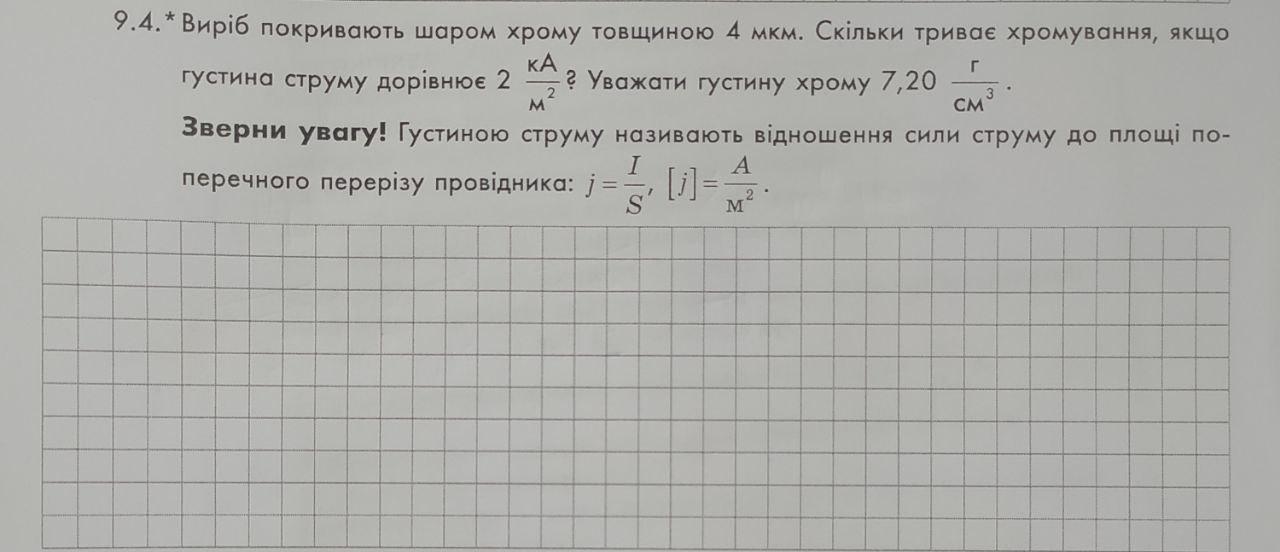 9.4.* Виріб покривають шаром хрому товщиною 4 мкм. Скільки триває хромування, якщо
густина струму дорівнює 2 кА/м²? Уважати густину хрому 7,20 г/см³.
Зверни увагу! Густиною струму називають відношення сили струму до площі по-
перечного перерізу провідника: j = I/S, [j] = А/м².